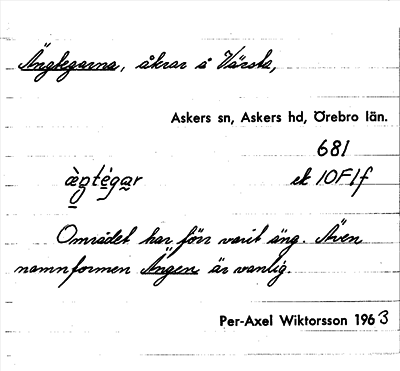 Ängtegarna, åkrar å Värsta,
Askers sn, Askers hd, Örebro län.
681
æ̀ŋtégar ek 10F1f
Området har förr varit äng. Även
namnformen Ängen är vanlig.
Per-Axel Wiktorsson 1963